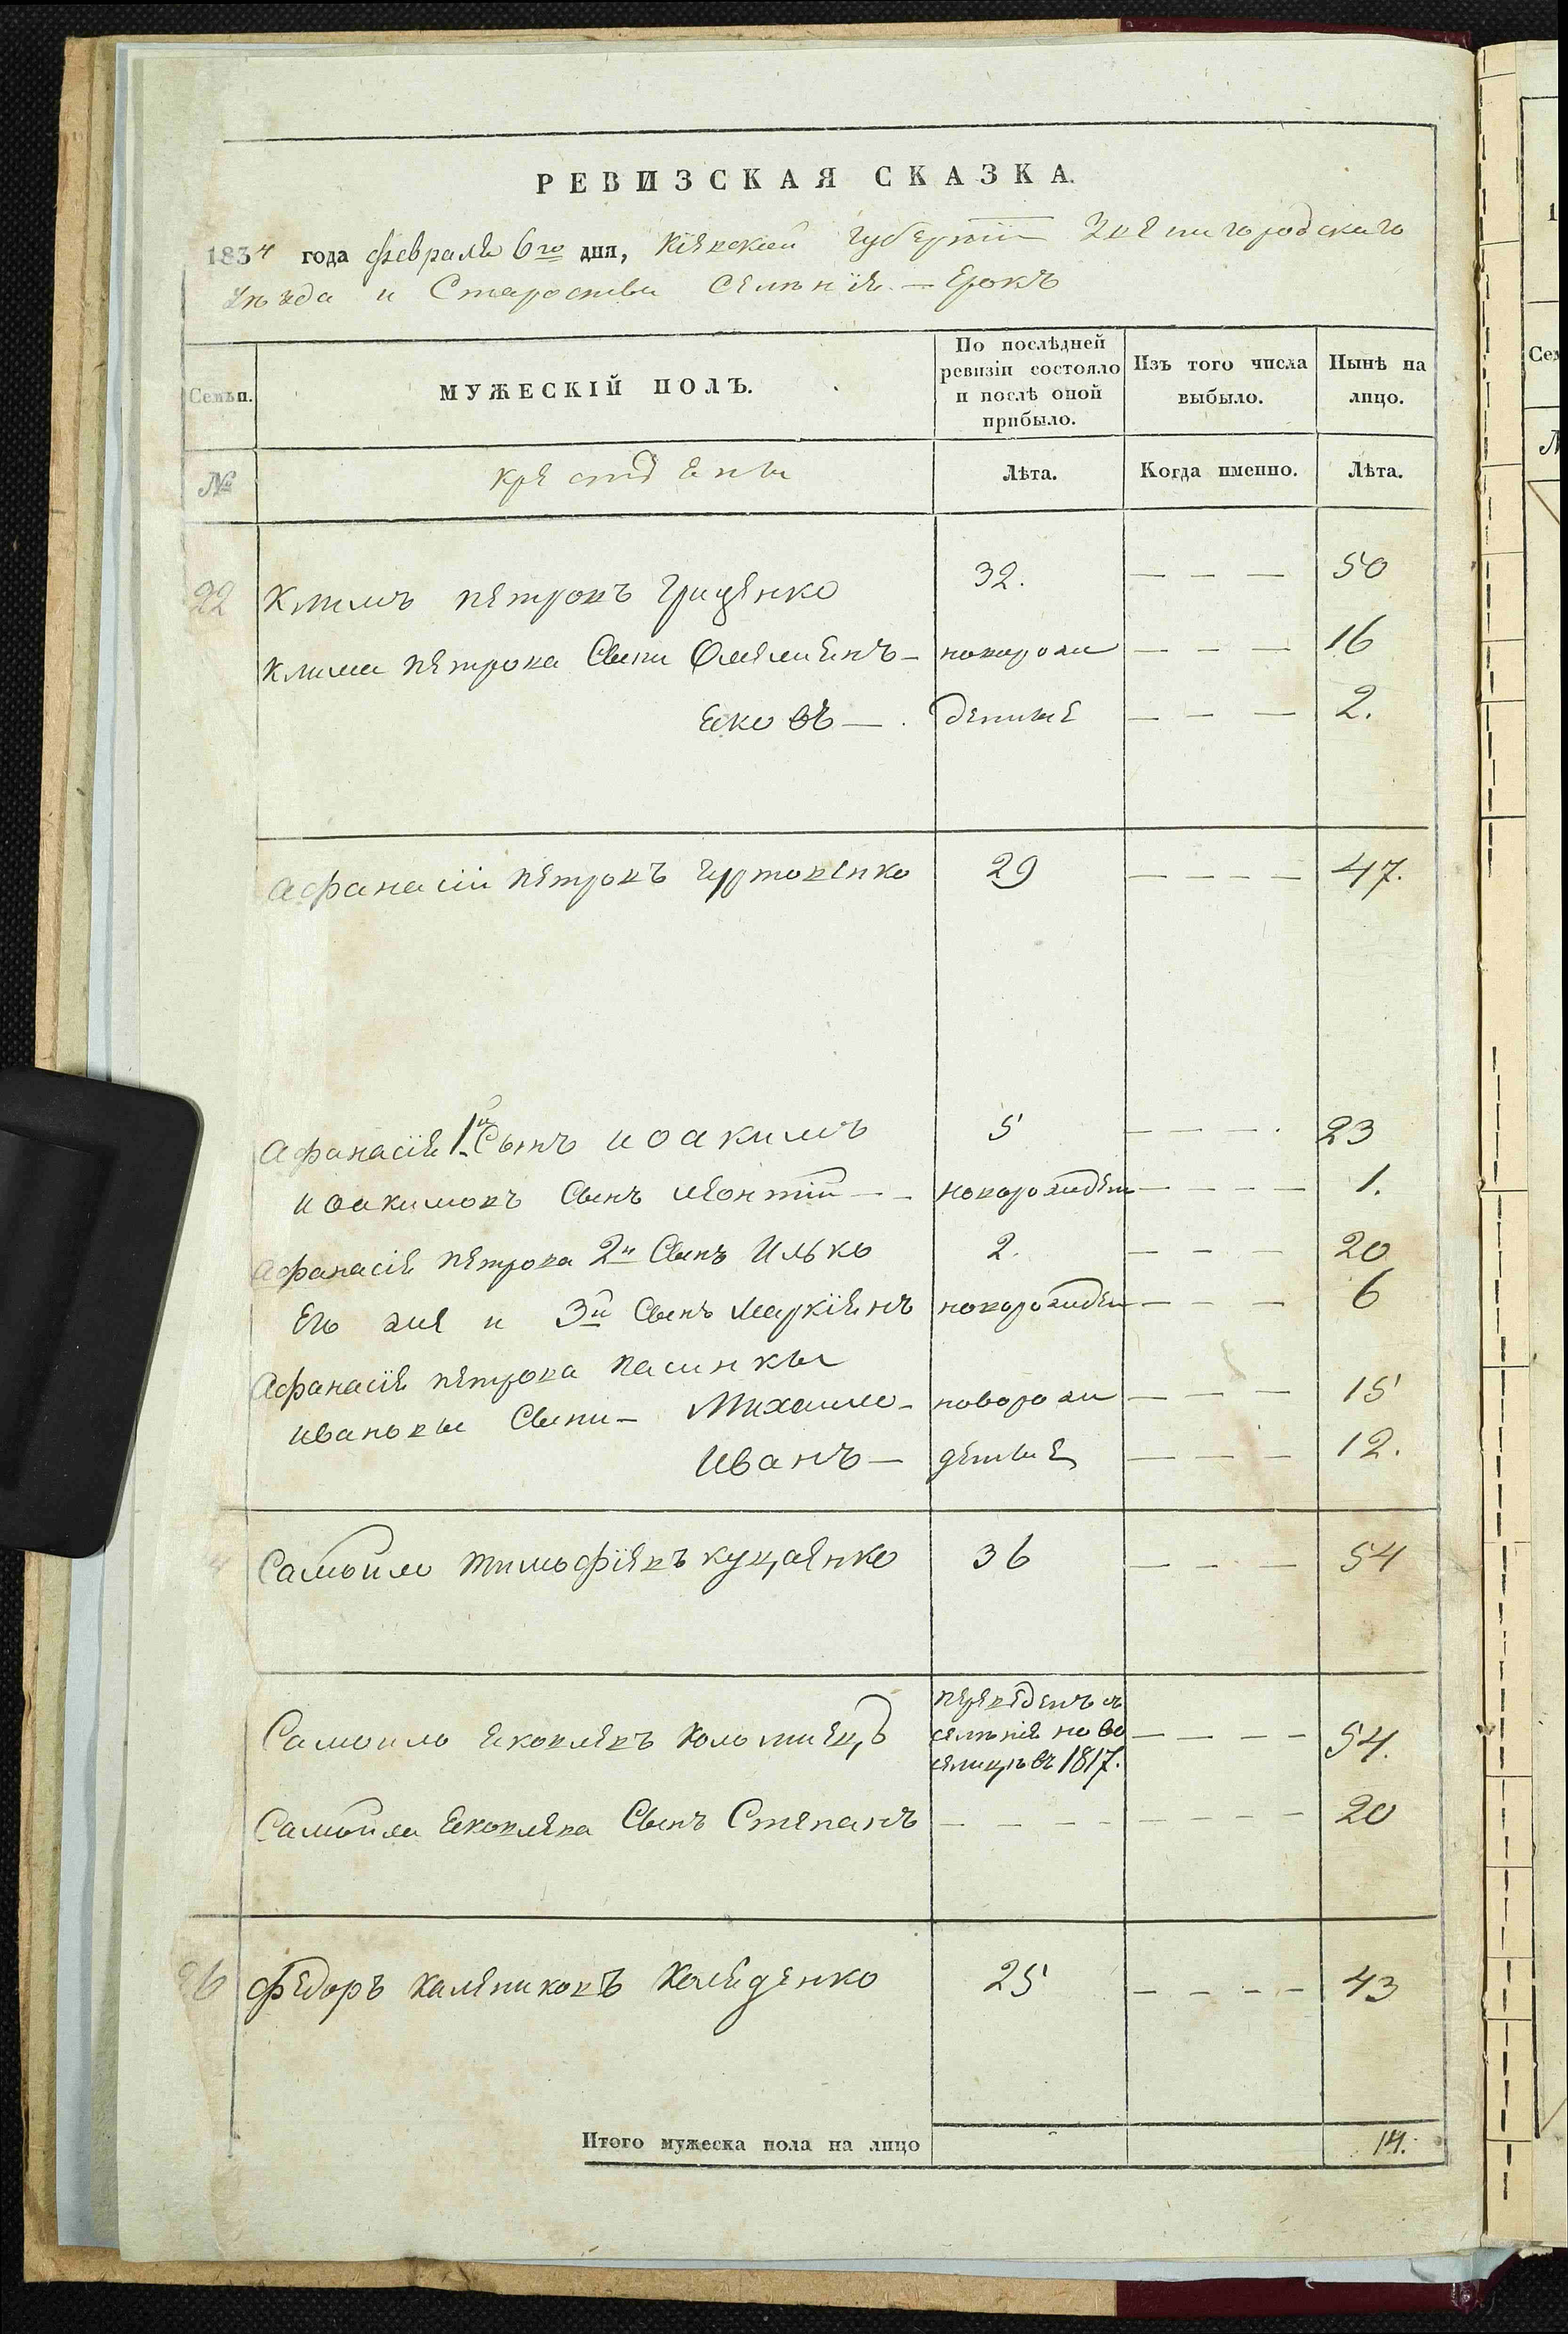 РЕВИЗСКАЯ СКАЗКА.
1834 года февраля 6го дня, Кіевской Губерніи Звенигородскаго
Уѣзда и Староства Селенія — Ерокъ
Семьи. МУЖЕСКІЙ ПОЛЪ. По послѣдней ревизіи состояло и послѣ оной прибыло. Изъ того числа выбыло. Нынѣ на лицо.
№ крестьяне Лѣта. Когда именно. Лѣта.
22 Климъ Петровъ Гриценко 32. — — — 50
Клима Петрова Сыни Омелиянъ — новорож — — — 16
Яковъ — . денние — — — 2.
Афанасій Петровъ Гуртовенко 29 — — — — 47.
Афанасія 1й Сынъ Иоакимъ 5 — — — . 23
Иоакимовъ Сынъ Леонтій — — новорожден — — — — 1.
Афанасія Петрова 2й Сынъ Илько 2. — — — 20
Его же и 3й Сынъ Маркіянъ новорожден — — — 6
Афанасія Петрова Пасинкы
Ивановы Сыни — Михаило — новорож — — — 15
Иванъ — денные — — — — 12.
Самойло Тимофіевъ Куценко 36 — — — — 54
Самоило Яковлевъ Коломиецъ переведенъ съ селенія Ново селицы въ 1817. — — — — 54.
Самойла Яковлева Сынъ Степанъ — — — — — — — — 20
26 Федоръ Калениковъ Койденко 25 — — — — 43
Итого мужеска пола на лицо 14.